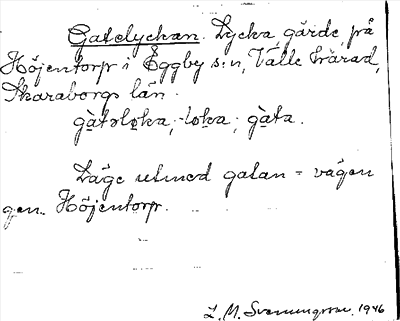 Gatelyckan. Lycka gärde på
Höjentorp i Eggby s:n, Valle härad,
Skaraborgs län.
gàtəlɵka, -lɵka, gàta.
Läge utmed gatan = vägen
gen. Höjentorp.
L. M. Svenungsson, 1946